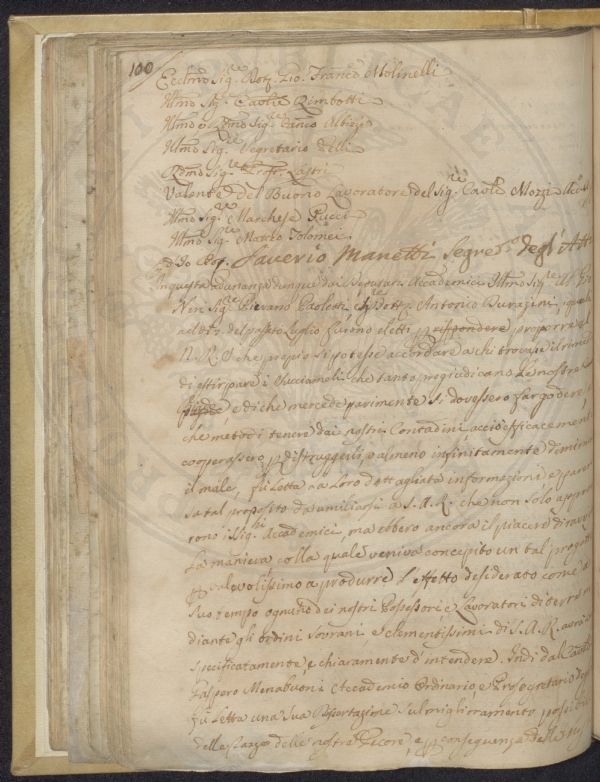 100
Ecclmo Sigr. Dott. Gio. Franco Molinelli
Illmo Sigr. Cavlre Rimbotti
Illmo e Rdmo Sigr. Canco Albizzi
Illmo Sigr. Segretario Pelli
Rdmo Sigr. Propto Lastri
Valente del Buono Lavoratore del Sigr. Cavlre Mozzi
Illmo Sigr. Marchese Pucci
Illmo Sigr. Matteo Tolomei
ed Io Dott. Saverio Manetti Segreto degl'Atti
In questa adunanza dunque dai Deputati Accademici Illmo Sigr.
Neri Sigr. Pievano Paoletti, e Sigr. Dottr. Antonio Durazzini, i quali
ne del passato Luglio furono eletti p rispondere, proporre a
S. A. R. che premio si potesse accordare a chi trovasse il rimedio
di estirpare i Succiameli che tanto pregiudicano le nostre
e di che mercede parimente si dovessero far godere, e
che metodi tenere dai nostri Contadini acciò efficacemente
cooperassero p distruggerli, o almeno infinitamente diminuire
il male, fù letta una loro dettagliata informazione e parere
su tal proposito da umiliarsi a S. A. R. che non solo appro
rono i Sigri Accademici, ma ebbero ancora il piacere di
la maniera colla quale veniva concepito un tal progetto
valevolissimo a produrre l'effetto desiderato come a
suo tempo ognuno dei nostri Possessori e Lavoratori di terre me
diante gli ordini sovrani e clementissimi di S. A. R. averà
specificatamente, e chiaramente d'intendere. Indi dal
Gaspero Menabuoni Accademico Ordinario, e Prosegretario
fù letta una sua Dissertazione sul miglioramento possibile
delle razze delle nostre Pecore, e p conseguenza delle